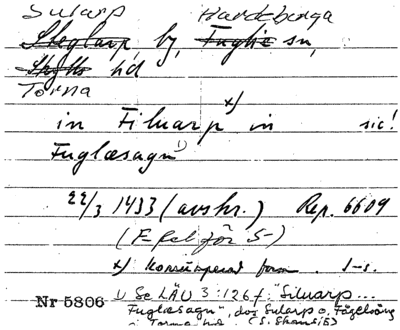 Sularp Hardeberga
Steglarp by, Fuglie sn,
Skytts hd
Torna
in Filuarp x) in sic!
Fuglæsagn 1)
22/3 1433 (avskr.) Rep. 6609
(F fel för S-)
x) Korrumperad form. S-s.
Nr 5806 1) Se LÄU 3:126 f: "Siluarp...
Fuglæsagn", dvs Sularp o. Fågelsång
i Torna hd (S. Skansjö)